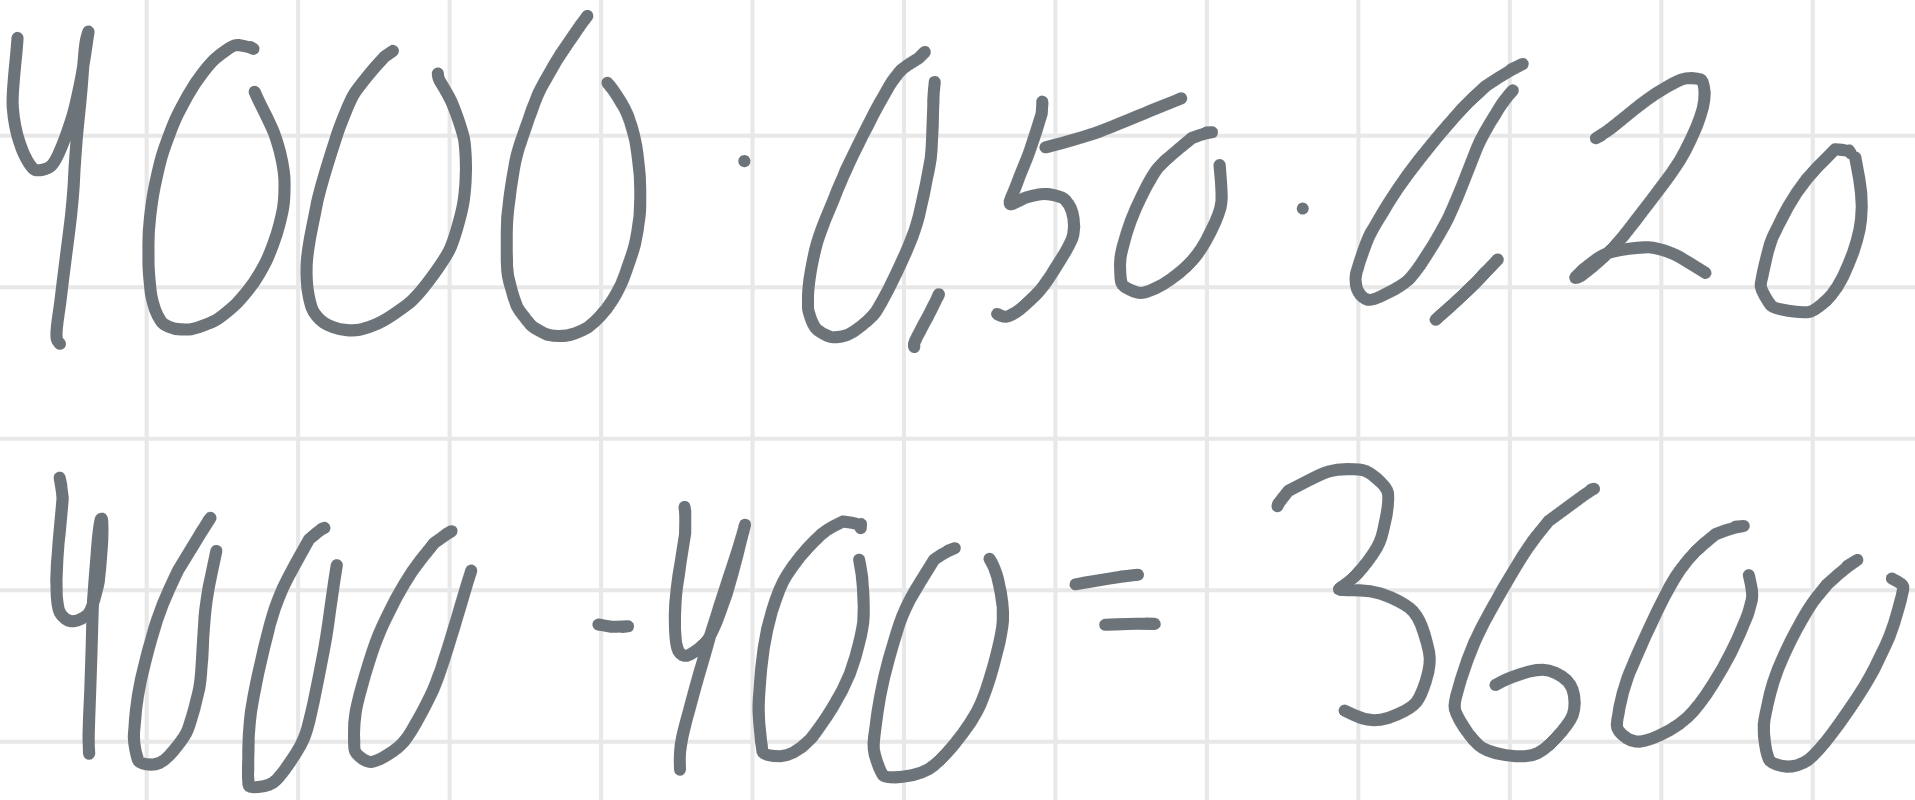 4000 · 0,50 · 0,20
4000 - 400 = 3600